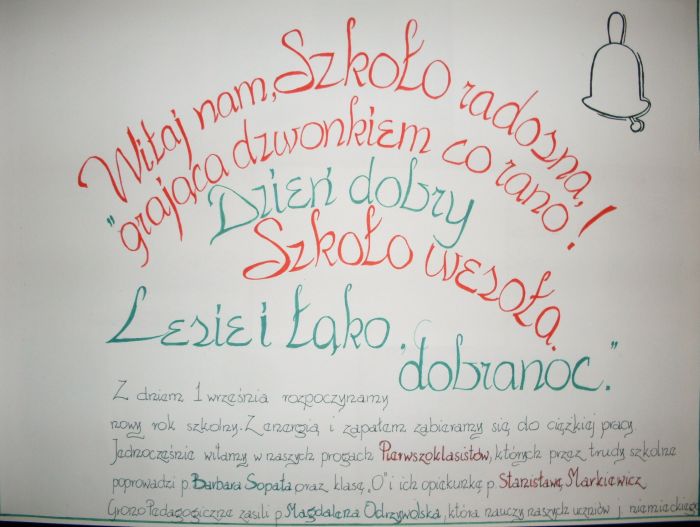 Witaj nam, Szkoło radosna,
"grająca dzwonkiem co rano!
Dzień dobry
Szkoło wesoła.
Lesie i łąko.
dobranoc."
Z dniem 1 września rozpoczynamy
nowy rok szkolny. Z energią i zapałem zabieramy się do ciężkiej pracy.
Jednocześnie witamy w naszych progach Pierwszoklasistów, których przez trudy szkolne
poprowadzi p. Barbara Sopata oraz klasę „0" i ich opiekunkę p. Stanisławę Markiewicz
Grono Pedagogiczne zasili p. Magdalena Odrzywolska, która nauczy naszych uczniów j. niemieckiego